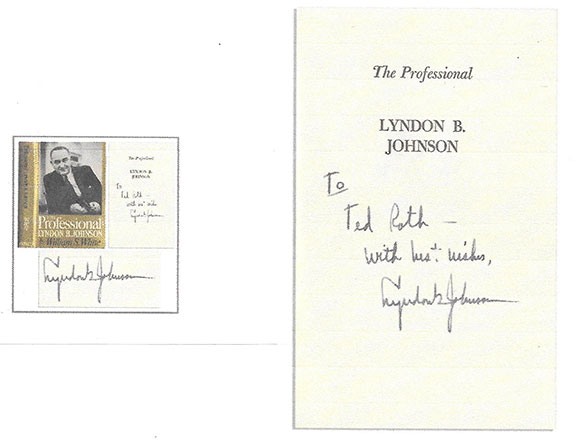 The Professional
LYNDON B. JOHNSON
by William S. White
The Professional
LYNDON B.
JOHNSON
To
Ted Roth —
with best wishes,
Lyndon B Johnson
Lyndon B Johnson
The Professional
LYNDON B.
JOHNSON
To
Ted Roth —
with best wishes,
Lyndon B Johnson